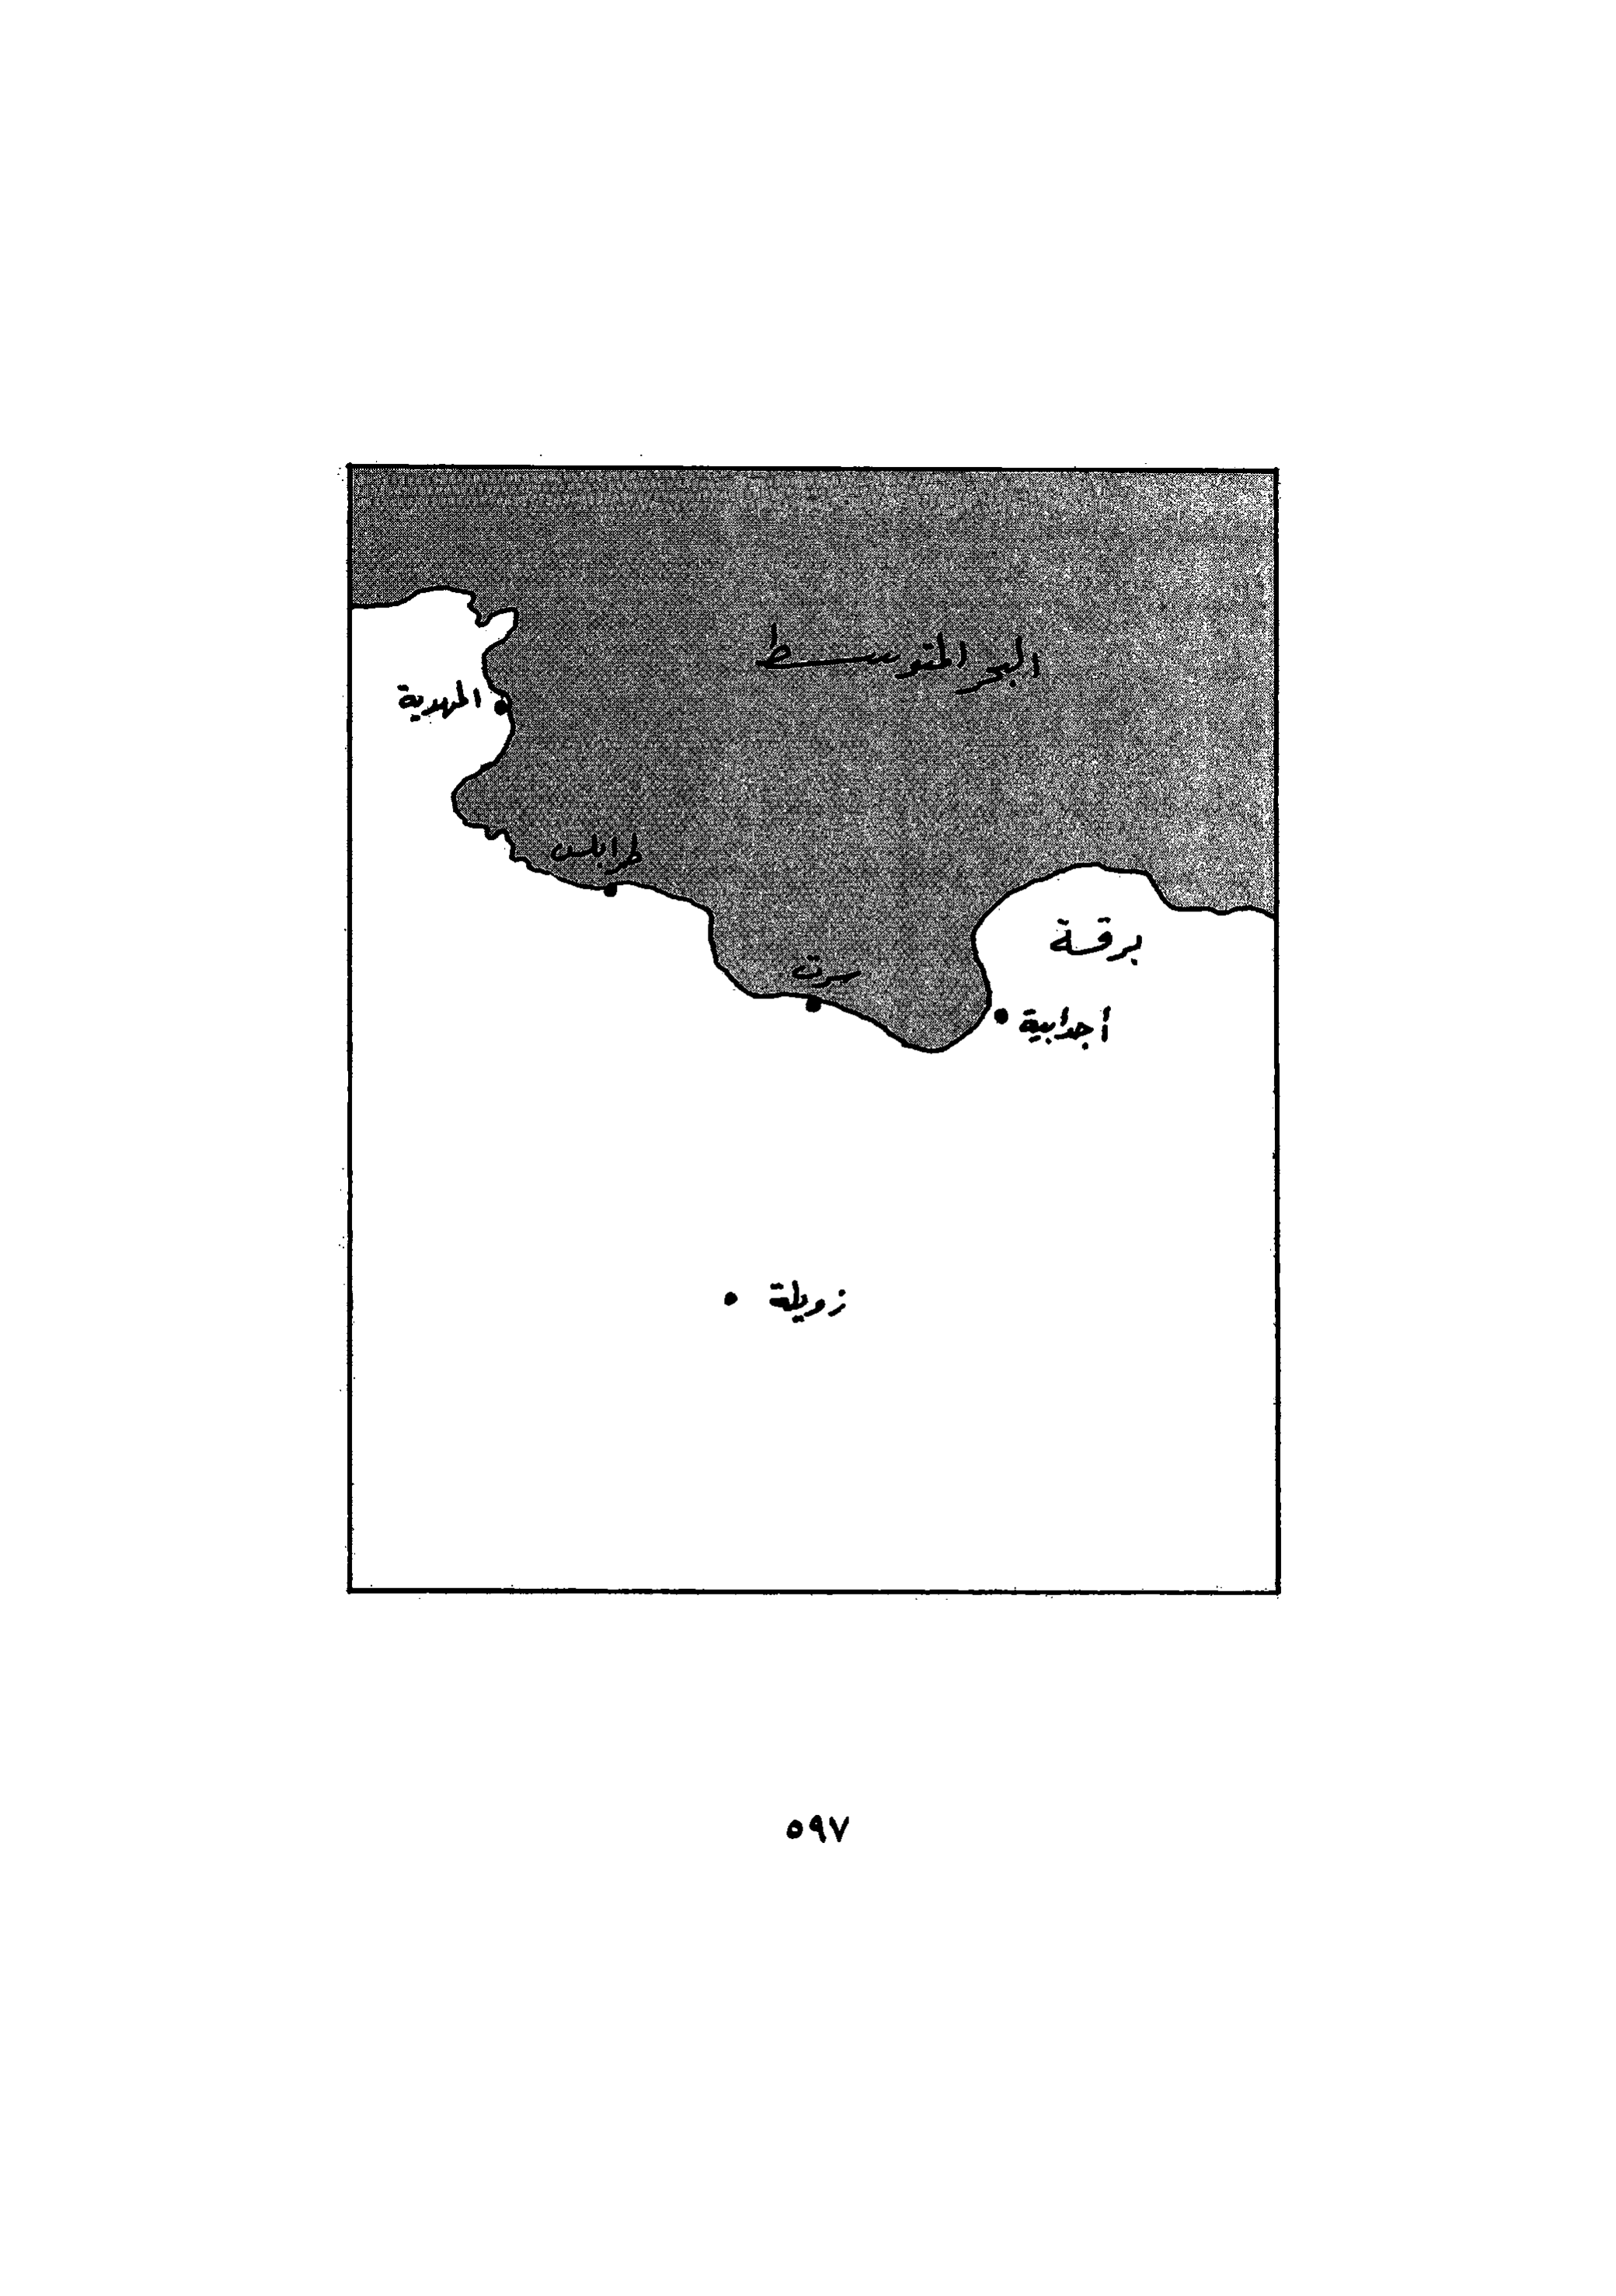 البحر المتوسط
المهدية
طرابلس
برقة
سرت
أجدابية
زويلة
٥٩٧